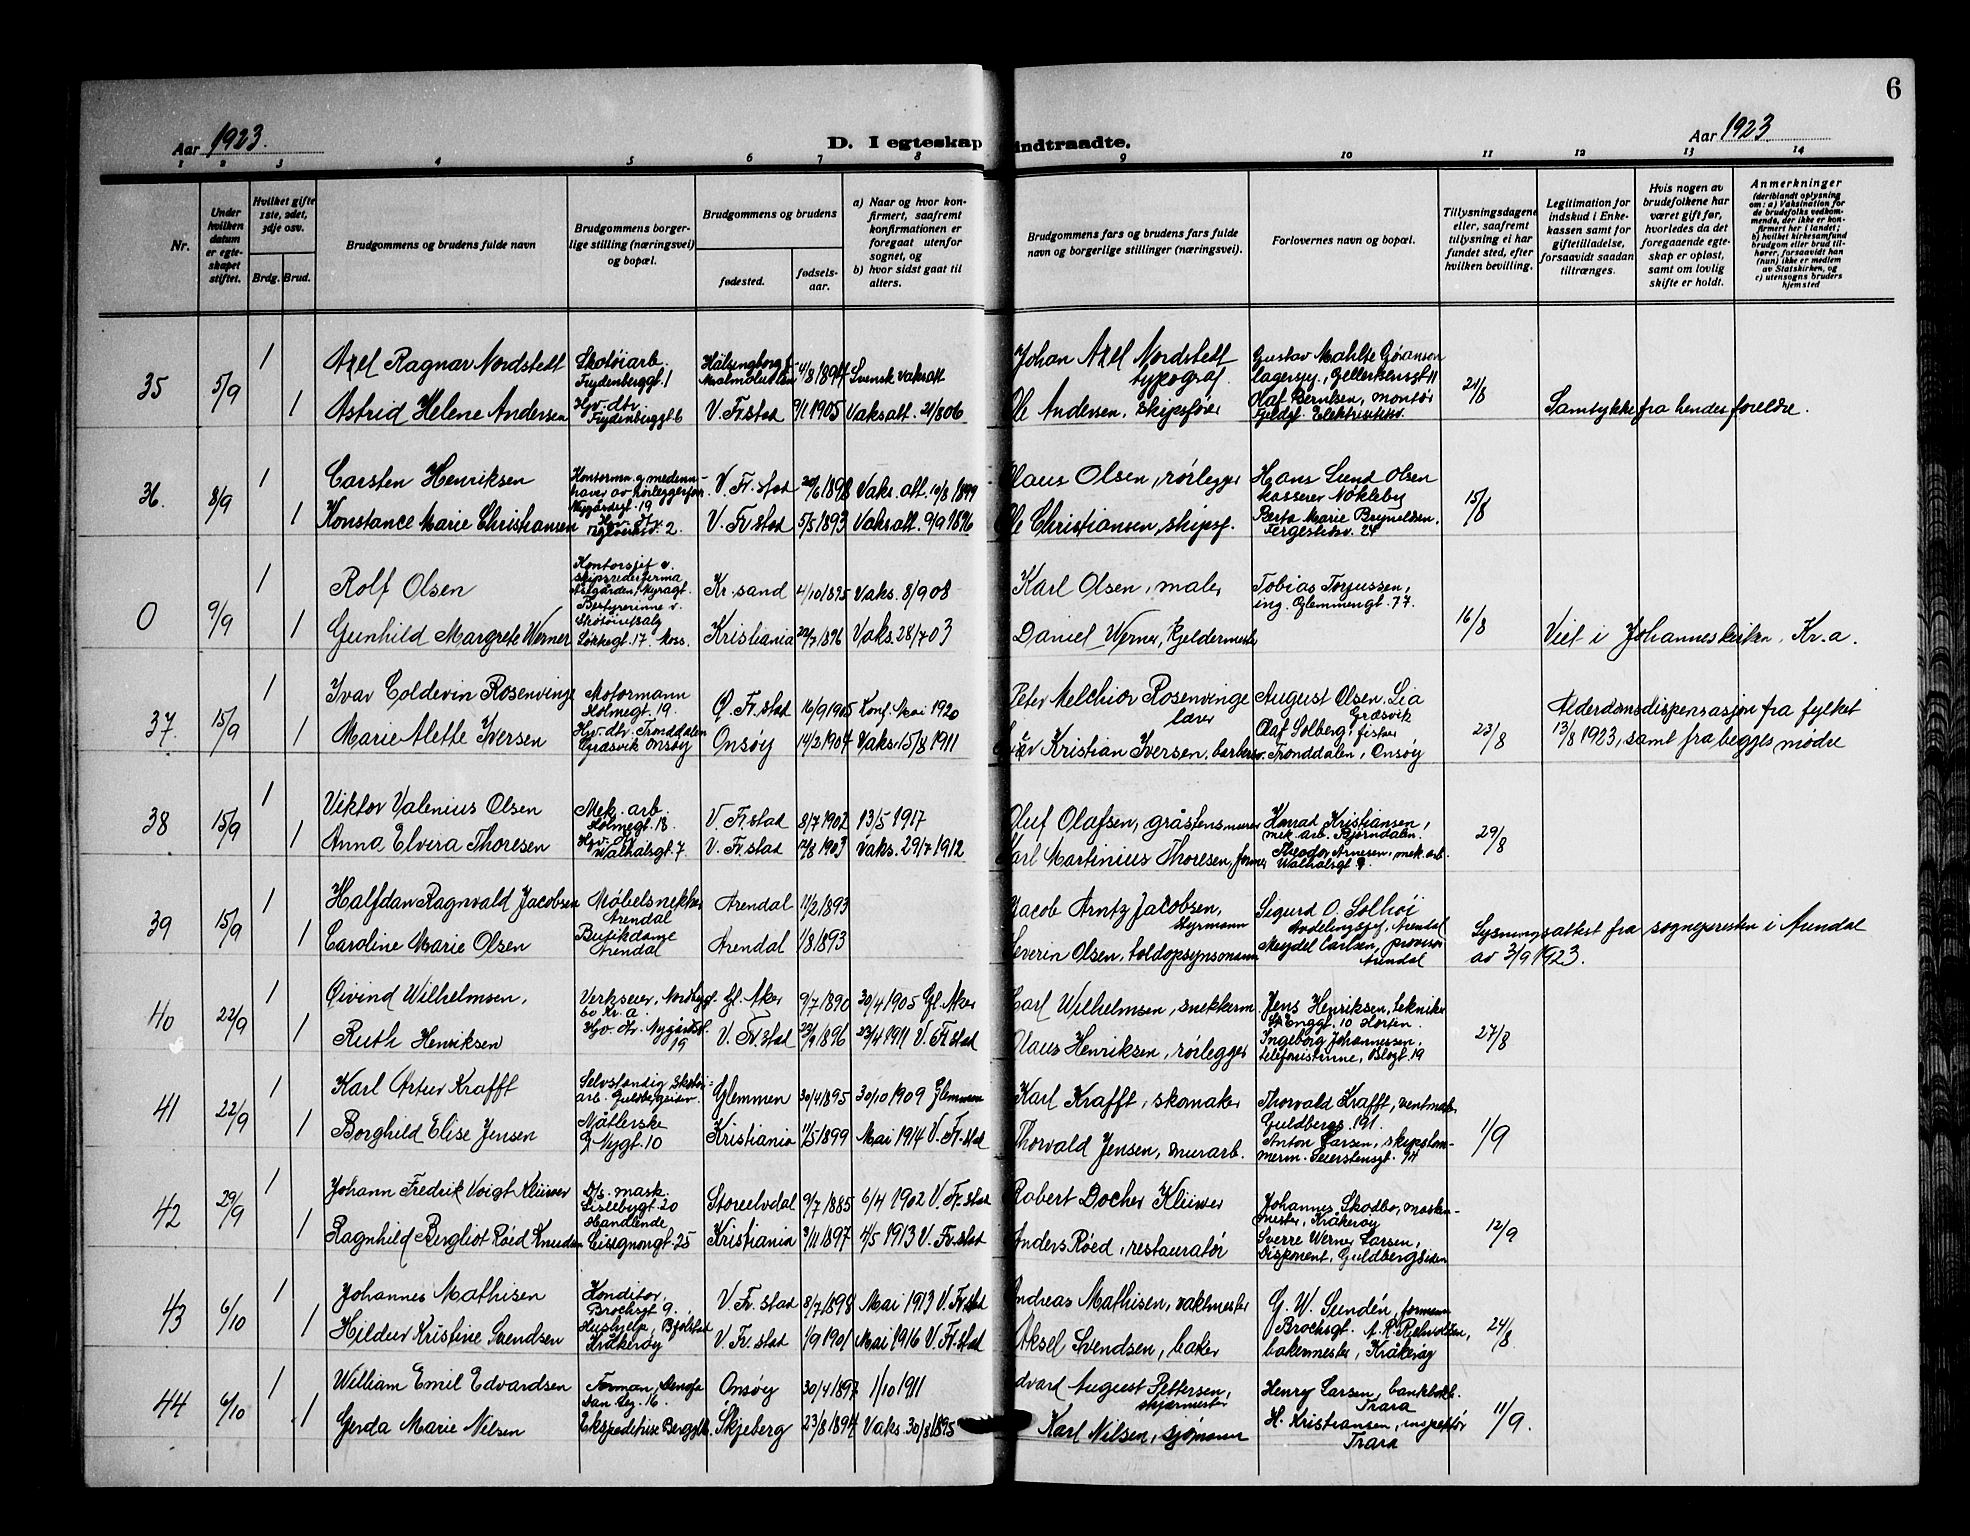 6
Aar 1923.
D. I egteskap indtraadte.
Aar 1923
1 2 3 4 5 6 7 8 9 10 11 12 13 14
Nr.
Under hvilken datum er egteskapet stiftet.
Hvilket gifte 1ste, 2det, 3dje osv.
Brdg. Brud.
Brudgommens og brudens fulde navn
Brudgommens borgerlige stilling (næringsvei) og bopæl.
Brudgommens og brudens
fødested.
fødselsaar.
a) Naar og hvor konfirmert, saafremt konfirmationen er foregaat utenfor sognet, og
b) hvor sidst gaat til alters.
Brudgommens fars og brudens fars fulde navn og borgerlige stillinger (næringsvei).
Forlovernes navn og bopæl.
Tillysningsdagene eller, saafremt tillysning ei har fundet sted, efter hvilken bevilling.
Legitimation for indskud i Enkekassen samt for giftetilladelse, forsaavidt saadan tiltrænges.
Hvis nogen av brudefolkene har været gift før, hvorledes da det foregaaende egteskap er opløst, samt om lovlig skifte er holdt.
Anmerkninger (deriblandt oplysning om: a) Vaksination for de brudefolks vedkommende, der ikke er konfirmert her i landet; b) hvilket kirkesamfund brudgom eller brud tilhører, forsaavidt han (hun) ikke er medlem av Statskirken, og c) utensogns bruders hjemsted
35 5/9 1 Axel Ragnar Nordstedt Skotøiarb. Frydenberggt. 1 Hälsingborg 4/8 1897 Svensk vaksatt Johan Axel Nordstedt typograf Gustav Mahlte Göranson 21/8
1 Astrid Helene Andersen Hv. dtr. Frydenberggt 6 V. Fr.stad 9/1 1905 Vaksatt. 21/8 06 Ole Andersen, skipsfører Olaf Berntsen, montør Samtykke fra hendes foreldre.
36. 8/9 1 Carsten Henriksen Nygårdsgt. 19 V. Fr.stad 1898 Vaks. att. 10/8 1899 Olaus Olsen, rørlegger Hans Lund Olsen kasserer Nøkleby 15/8
1 Konstance Marie Christiansen Hv. dtr. 2 V. Fr.stad 5/5 1893 Vaksatt. 9/9 1896 Ole Christiansen, skipsf. Berta Marie Brynildsen. Fergestedsv. 24
0 9/9 1 Rolf Olsen Kontorsjef v. skipsrederfirma Kr.sand 4/10 1895 Vaks. 8/9 08 Karl Olsen, maler Tobias Torjussen, ing. Glemmengt. 77. 16/8
1 Gunhild Margrete Werner Bestyrerinne v. Skotøiutsalg 17. Moss. Kristiania 22/7 1896 Vaks. 28/7 03 Daniel Werner, Viet i Johanneskirken, Kr.a.
37. 15/9 1 Ivar Coldevin Rosenvinge Motormann Holmegt. 19. Ø. Fr.stad 16/9 1905 Konf. Mai 1920 Peter Melchior Rosenvinge lærer August Olsen Lia Græsvik 23/8 Alderdomsdispensasjon fra fylket
1 Marie Alette Iversen Hv. dtr. Tronddalen Græsvik Onsøy Onsøy 14/2 1907 Vaks. 15/8 1911 Kristian Iversen, Olaf Solberg, fisker Tronddalen, Onsøy 13/8 1923, samt fra begges mødre
38 15/9 1 Viktor Valenius Olsen Mek. arb. Holmegt. 18. V. Fr.stad 8/7 1902 13/5 1917 Oluf Olafsen, gråstensmurer Konrad Kristiansen, mek. arb. Bjørndalen. 29/8
1 Anna Elvira Thoresen Hv. dtr. Walhalsgt. 7 V. Fr.stad 1903 Vaks. 29/7 1912 Karl Martinius Thoresen, former Theodor Arnesen, mek. arb. Walhalsgt 9
39 15/9 1 Halfdan Ragnvald Jacobsen Møbelsnekker Arendal Arendal 11/2 1893 Jacob Arntz Jacobsen, Styrmann Sigurd O. Solhoi Avdelingssjef, Arendal Lysningsattest fra sognepresten i Arendal
1 Caroline Marie Olsen Butikdame Arendal Arendal 1/8 1893 Severin Olsen, toldopsynsmann Meydel Carlsen, provisor Arendal av 3/9 1923.
40 22/9 1 Øivind Wilhelmsen, Verkseier, 60 Kr.a. Gl. Aker 9/7 1890 30/4 1905 Gl. Aker Carl Wilhelmsen, snekkerm Jens Henriksen, tekniker St. Enggt. 10 Horten. 27/8
1 Ruth Henriksen Hv. dtr. Nygårdsgt. 19 V. Fr.stad 1896 23/4 1911 V. Fr.stad Olaus Henriksen, rørlegger Ingeborg Johannessen, telefonistinne, Blogt. 19
41 22/9 1 Karl Artur Krafft Selvstændig skotøiarb. Glemmen 30/4 1895 30/10 1909 Glemmen Karl Krafft, skomaker Thorvald Krafft, Guldbergs. 191. 1/9
1 Borghild Elise Jensen Nåtlerske Nygt. 10 Kristiania 11/5 1899 Mai 1914 V. Fr.stad Thorvald Jensen, murarb. Anton Larsen, skipstømmerm. Seierstensgt. 94
42 29/9 1 Johann Fredrik Voigt Klüwer mask. Lislebygt. 20 Storelvdal 9/7 1885 6/4 1902 V. Fr.stad Robert Docher Klüwer Johannes Skodbo, maskinmester, Kråkerøy 12/9
1 Ragnhild Bergliot Røed Knudsen Handlende Cicignongt. 25 Kristiania 3/11 1897 4/5 1913 V. Fr.stad Anders Røed, restauratør Sverre Werner Larsen, Disponent, Guldbergsiden
43 6/10 1 Johannes Mathisen Konditor, Brochsgt 9. V. Fr.stad 8/7 1898 Mai 1913 V. Fr.stad Andreas Mathisen, vaktmester G. W. Sundén, formann Brochsgt. 24/8
1 Hildur Kristine Svendsen Hushjelp Kråkerøy V. Fr.stad 1/9 1901 Mai 1916 V. Fr.stad Aksel Svendsen, baker bakermester, Kråkerøy
44 6/10 1 William Emil Edvardsen Forman, Denofa 16. Onsøy 30/4 1897 1/10 1911 Edvard August Pettersen, Henry Larsen, Trara 11/9.
1 Gerda Marie Nilsen Ekspeditrise Skjeberg 23/8 1894 Vaks. 30/8 1895 Karl Nilsen, sjømann H. Kristiansen, inspektør Trara